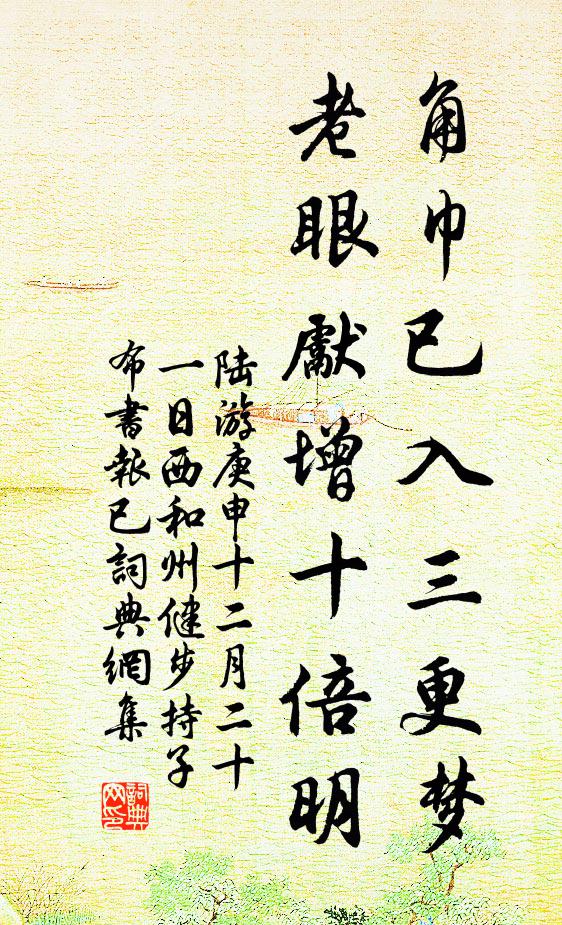 角巾已入三更梦
老眼獻增十倍明
陆游庚申十二月二十
一日西和州健步持子
布書報已詞典網集
詞典
网印